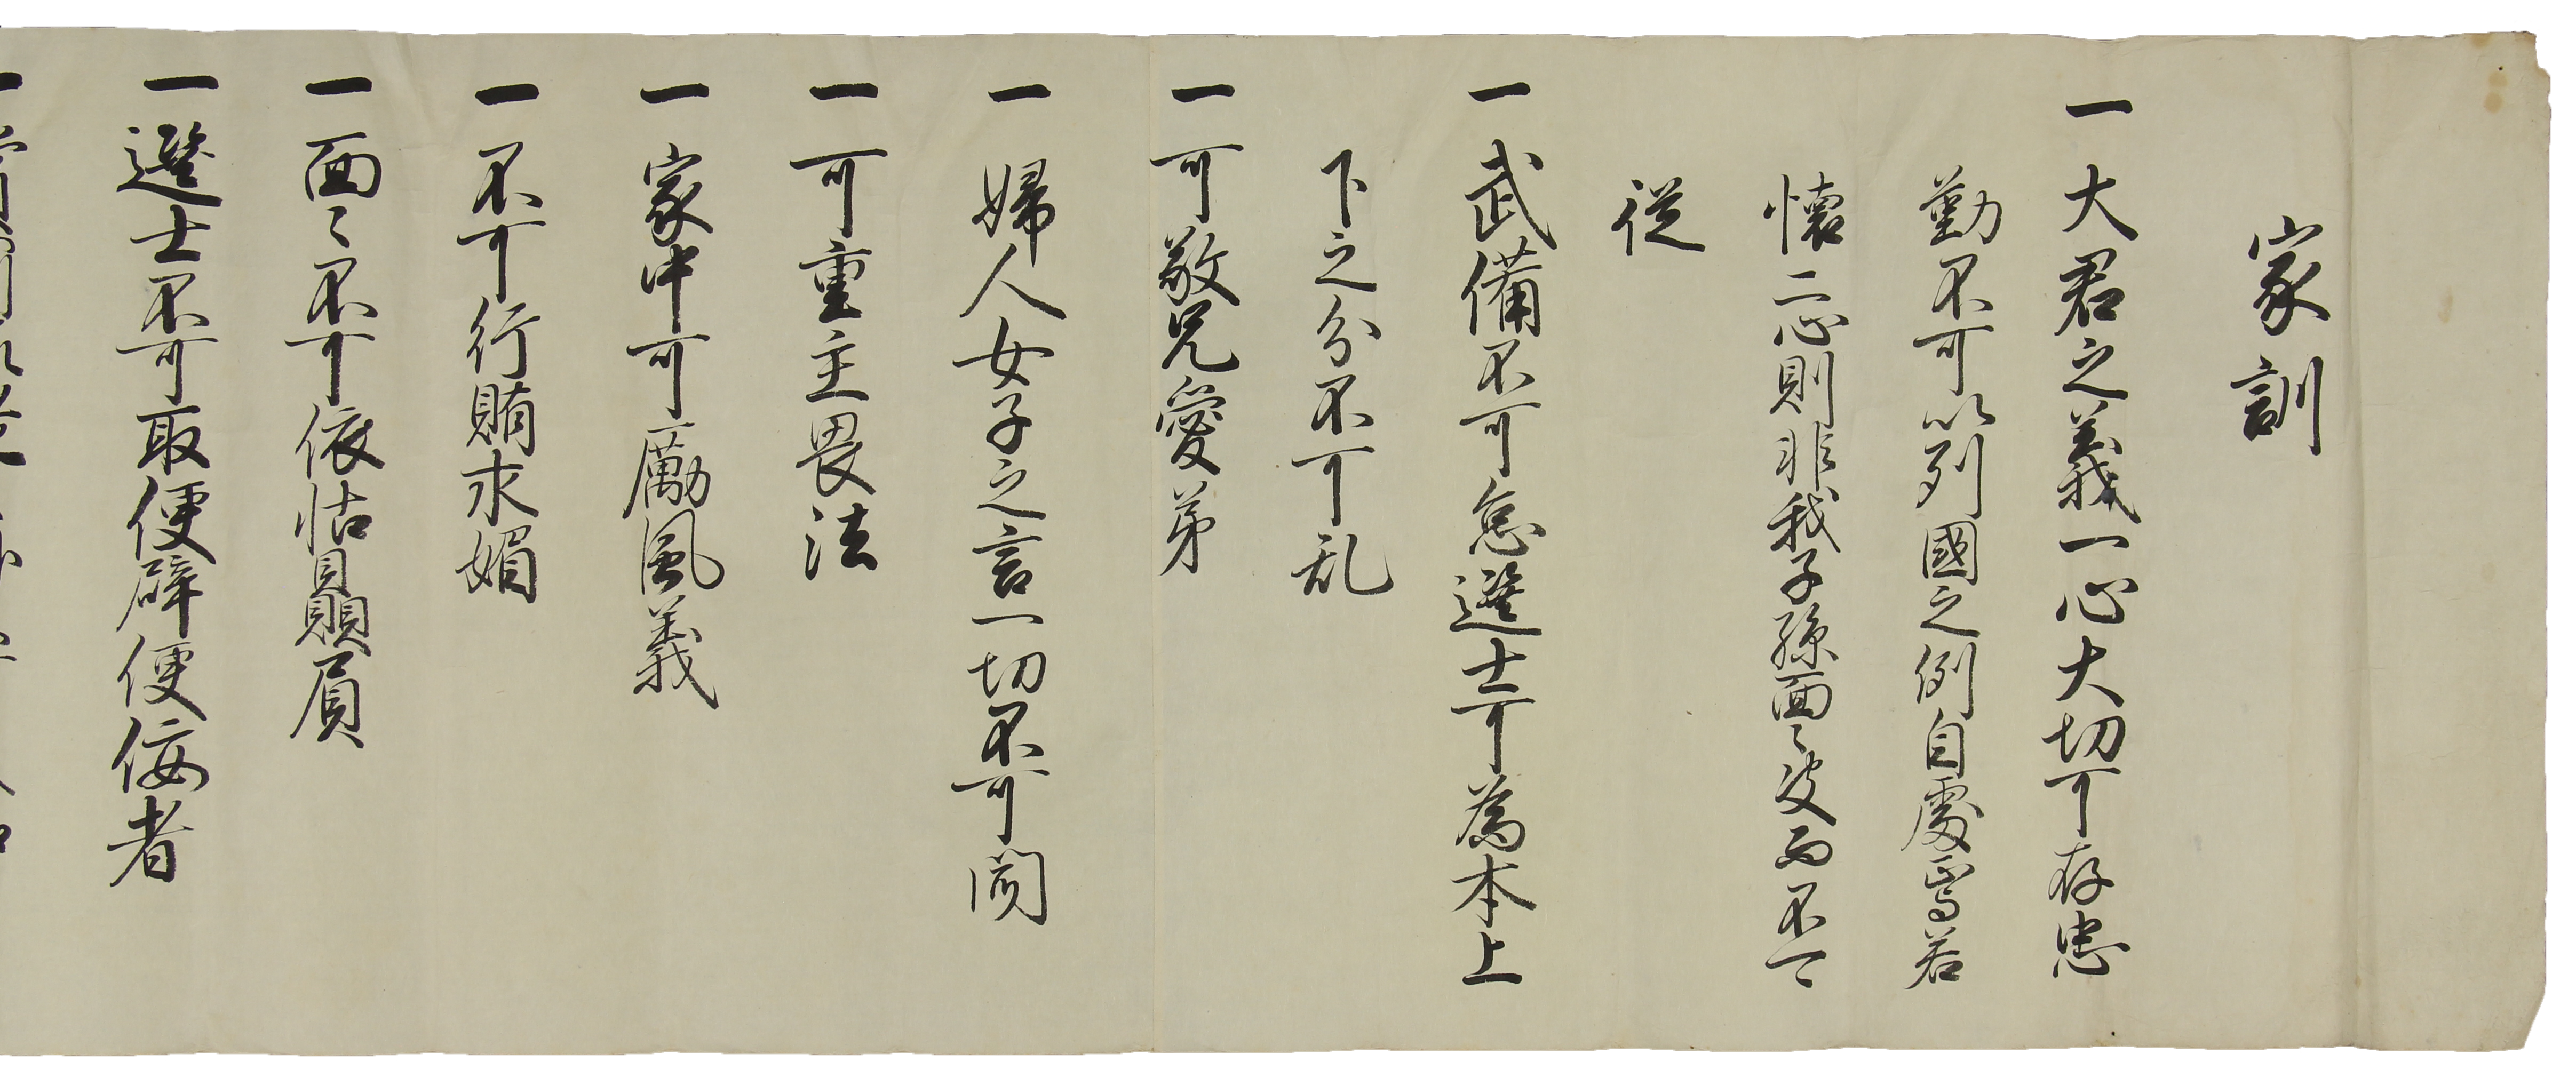 家訓
一大君之義一心大切可存忠
勤不可以列國之例自處焉若
懐二心則非我子孫面々決而不可
従
一武備不可怠選士可為本上
下之分不可乱
一可敬兄愛弟
一婦人女子之言一切不可聞
一可重主畏法
一家中可厲風義
一不可行賄求媚
一面々不可依怙贔屓
一選士不可取便辟便佞者
一賞罰